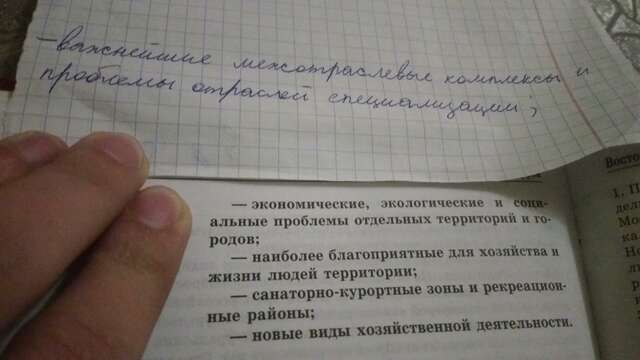 -важнейшие межотраслевые комплексы и
проблемы отраслей специализации,
— экономические, экологические и соци-
альные проблемы отдельных территорий и го-
родов;
— наиболее благоприятные для хозяйства и
жизни людей территории;
— санаторно-курортные зоны и рекреацион-
ные районы;
— новые виды хозяйственной деятельности.
Восто
1. П
дел
Мо
ка
Не